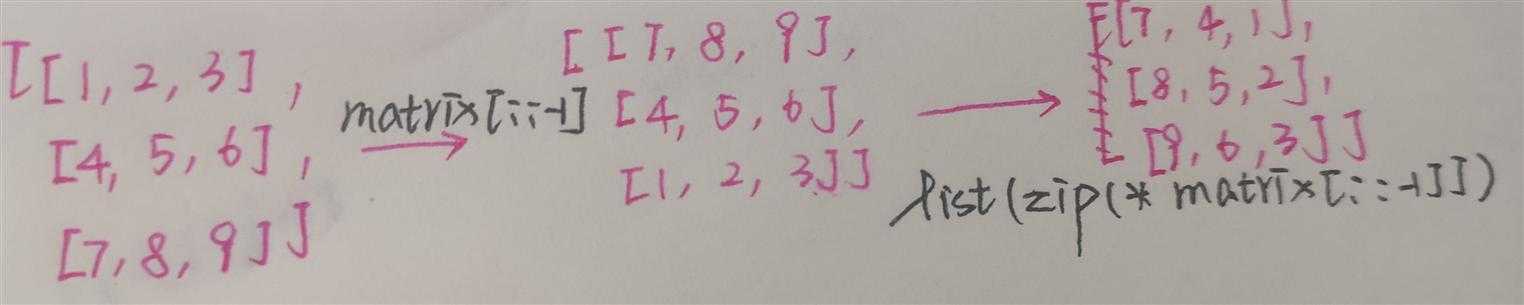 [[1, 2, 3],
[4, 5, 6],
[7, 8, 9]]
matrix[::-1]
[[7, 8, 9],
[4, 5, 6],
[1, 2, 3]]
[[7, 4, 1],
[8, 5, 2],
[9, 6, 3]]
list(zip(* matrix[::-1]])